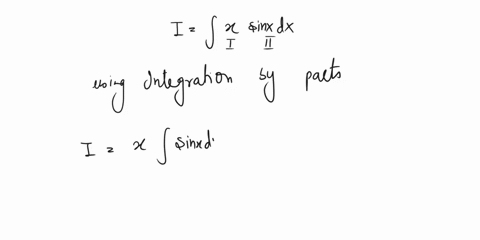 I = ∫ x sinx dx
I II
using Integration by parts
I = x ∫ sinx d